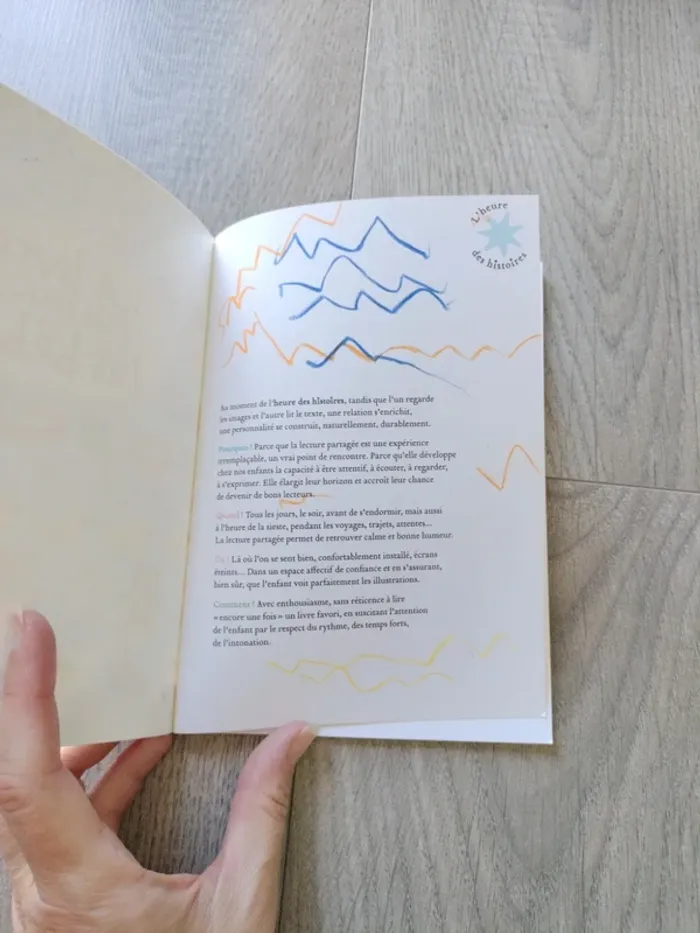 L'heure
des histoires
Au moment de l'heure des histoires, tandis que l'un regarde
les images et l'autre lit le texte, une relation s'enrichit,
une personnalité se construit, naturellement, durablement.
Pourquoi ? Parce que la lecture partagée est une expérience
irremplaçable, un vrai point de rencontre. Parce qu'elle développe
chez nos enfants la capacité à être attentif, à écouter, à regarder,
à s'exprimer. Elle élargit leur horizon et accroît leur chance
de devenir de bons lecteurs.
Quand ? Tous les jours, le soir, avant de s'endormir, mais aussi
à l'heure de la sieste, pendant les voyages, trajets, attentes...
La lecture partagée permet de retrouver calme et bonne humeur.
Où ? Là où l'on se sent bien, confortablement installé, écrans
éteints... Dans un espace affectif de confiance et en s'assurant,
bien sûr, que l'enfant voit parfaitement les illustrations.
Comment ? Avec enthousiasme, sans réticence à lire
« encore une fois » un livre favori, en suscitant l'attention
de l'enfant par le respect du rythme, des temps forts,
de l'intonation.